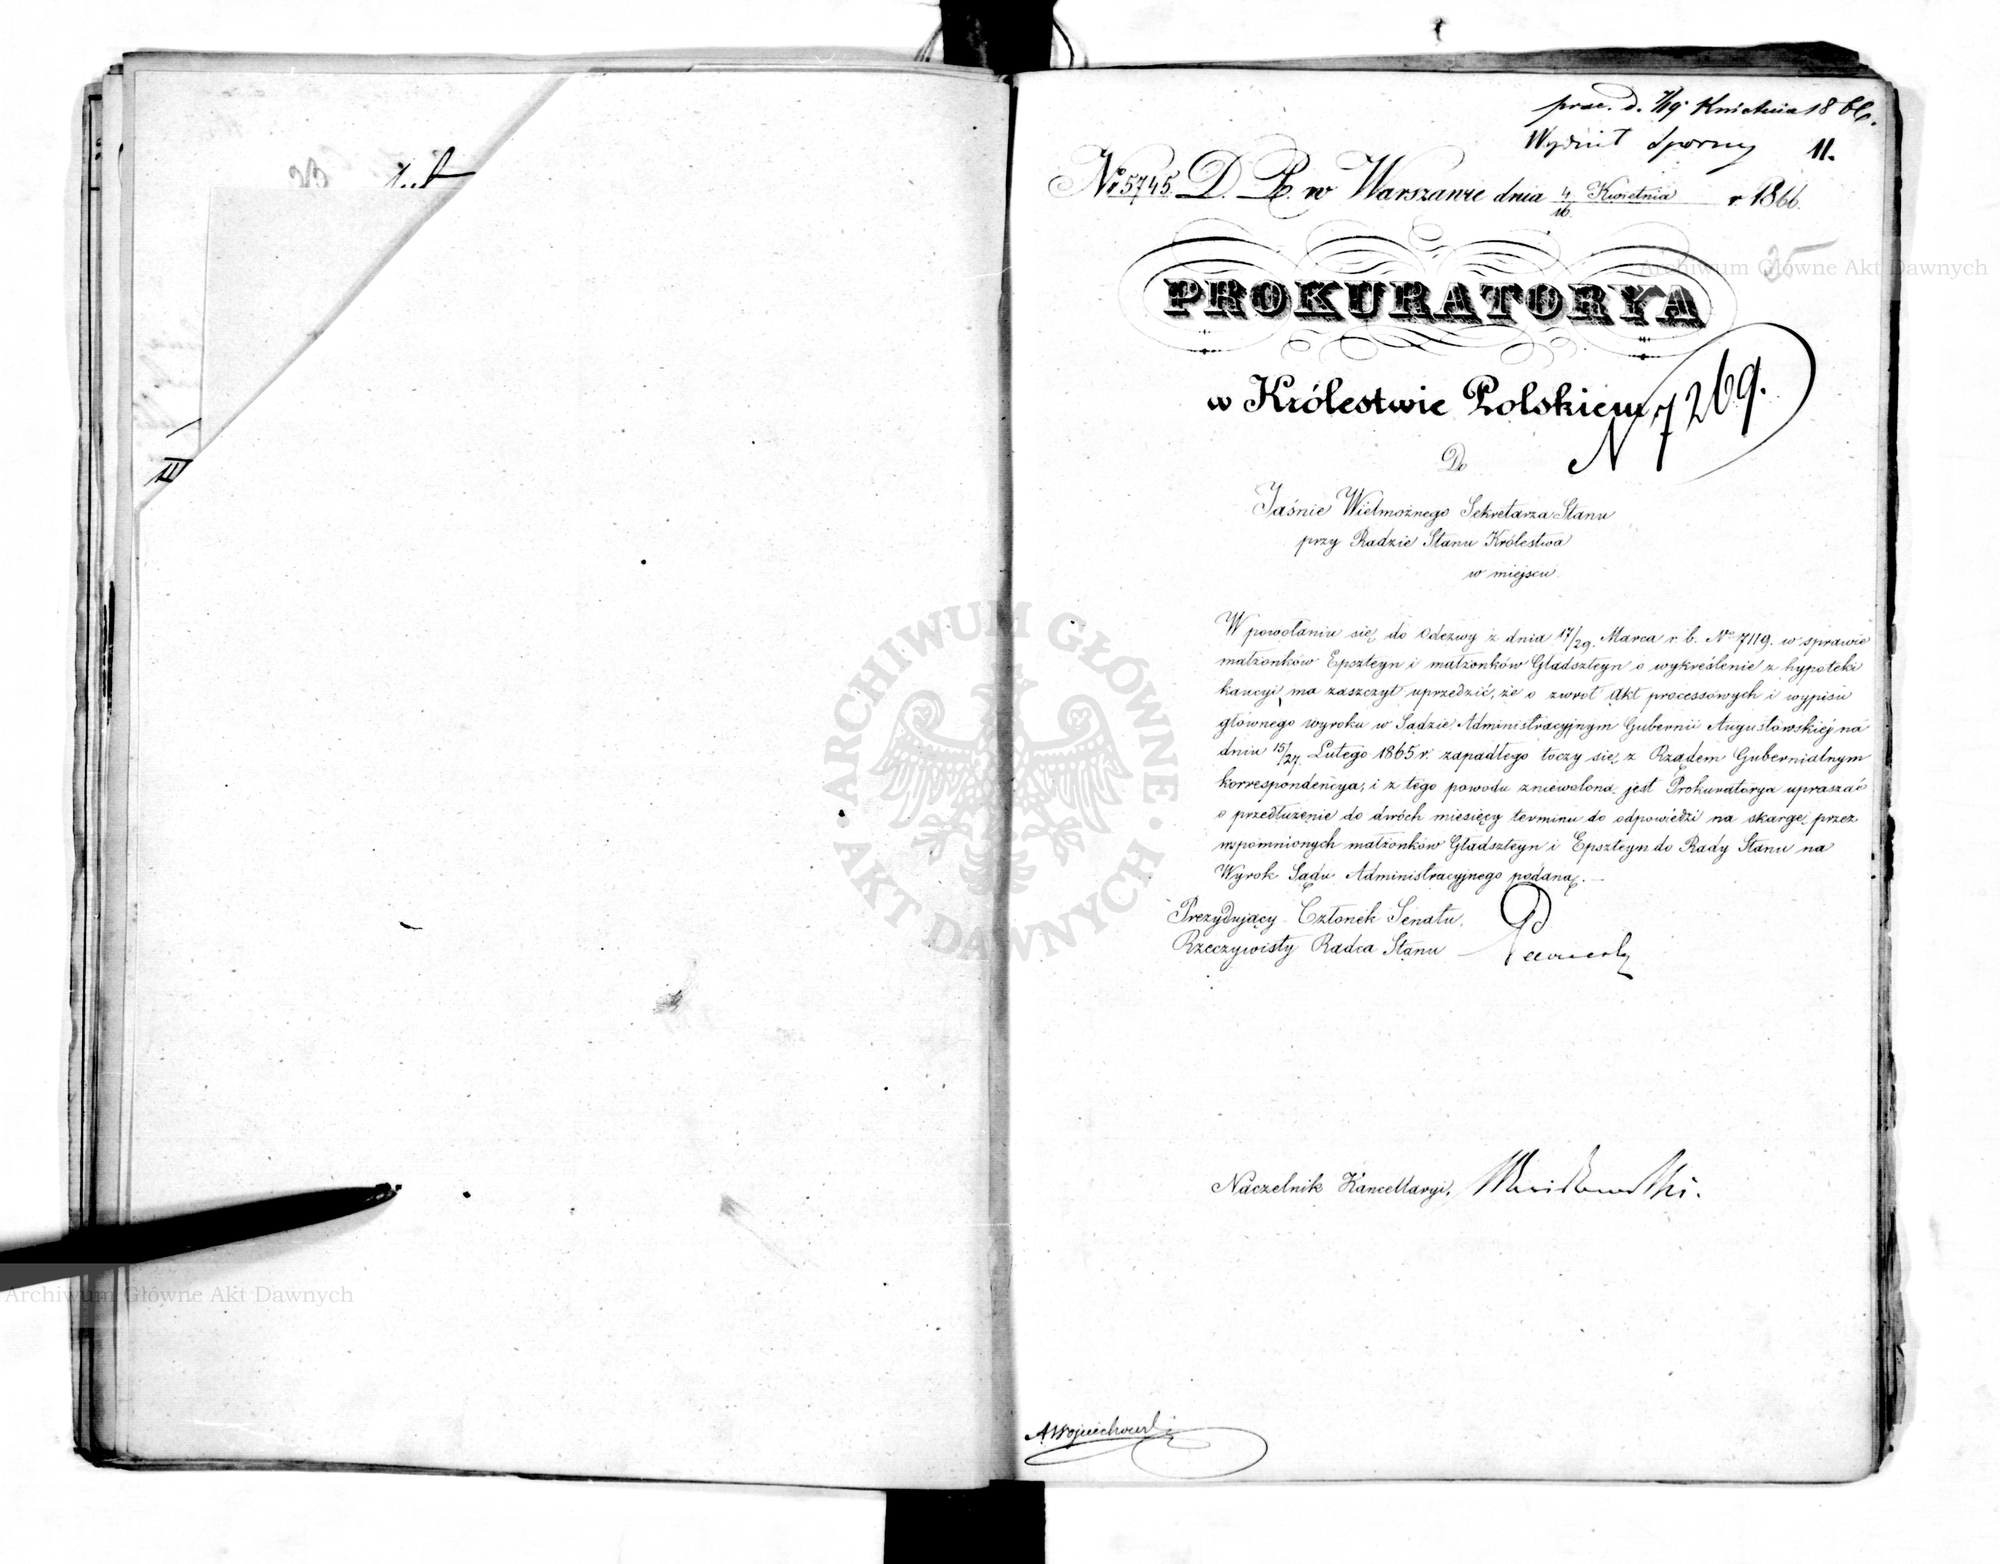 prez. d. 7/19 Kwietnia 1866.
Wydział Sporny 11.
No 5745. D. P. w Warszawie dnia 4/16 Kwietnia r. 1866.
35
PROKURATORYA
w Królestwie Polskiem
N 7269.
Do
Jaśnie Wielmożnego Sekretarza Stanu
przy Radzie Stanu Królestwa
w miejscu.
W powołaniu się do Odezwy z dnia 17/29. Marca r. b. No 7119. w sprawie
małżonków Epszteyn i małżonków Gladszteyn o wykreślenie z hypoteki
kaucyi, ma zaszczyt uprzedzić, że o zwrot Akt processowych i wypisu
głównego wyroku w Sądzie Administracyjnym Gubernii Augustowskiéj na
dniu 15/27. Lutego 1865 r. zapadłego toczy się z Rządem Gubernialnym
korrespondencya, i z tego powodu zniewolona jest Prokuratorya upraszać
o przedłużenie do dwóch miesięcy terminu do odpowiedzi na skargę przez
wspomnionych małżonków Gladszteyn i Epszteyn do Rady Stanu na
Wyrok Sądu Administracyjnego podaną.
Prezydujący Członek Senatu,
Rzeczywisty Radca Stanu
Naczelnik Kancellaryi,
AWojciechowski
ARCHIWUM GŁÓWNE AKT DAWNYCH
Archiwum Główne Akt Dawnych
Archiwum Główne Akt Dawnych